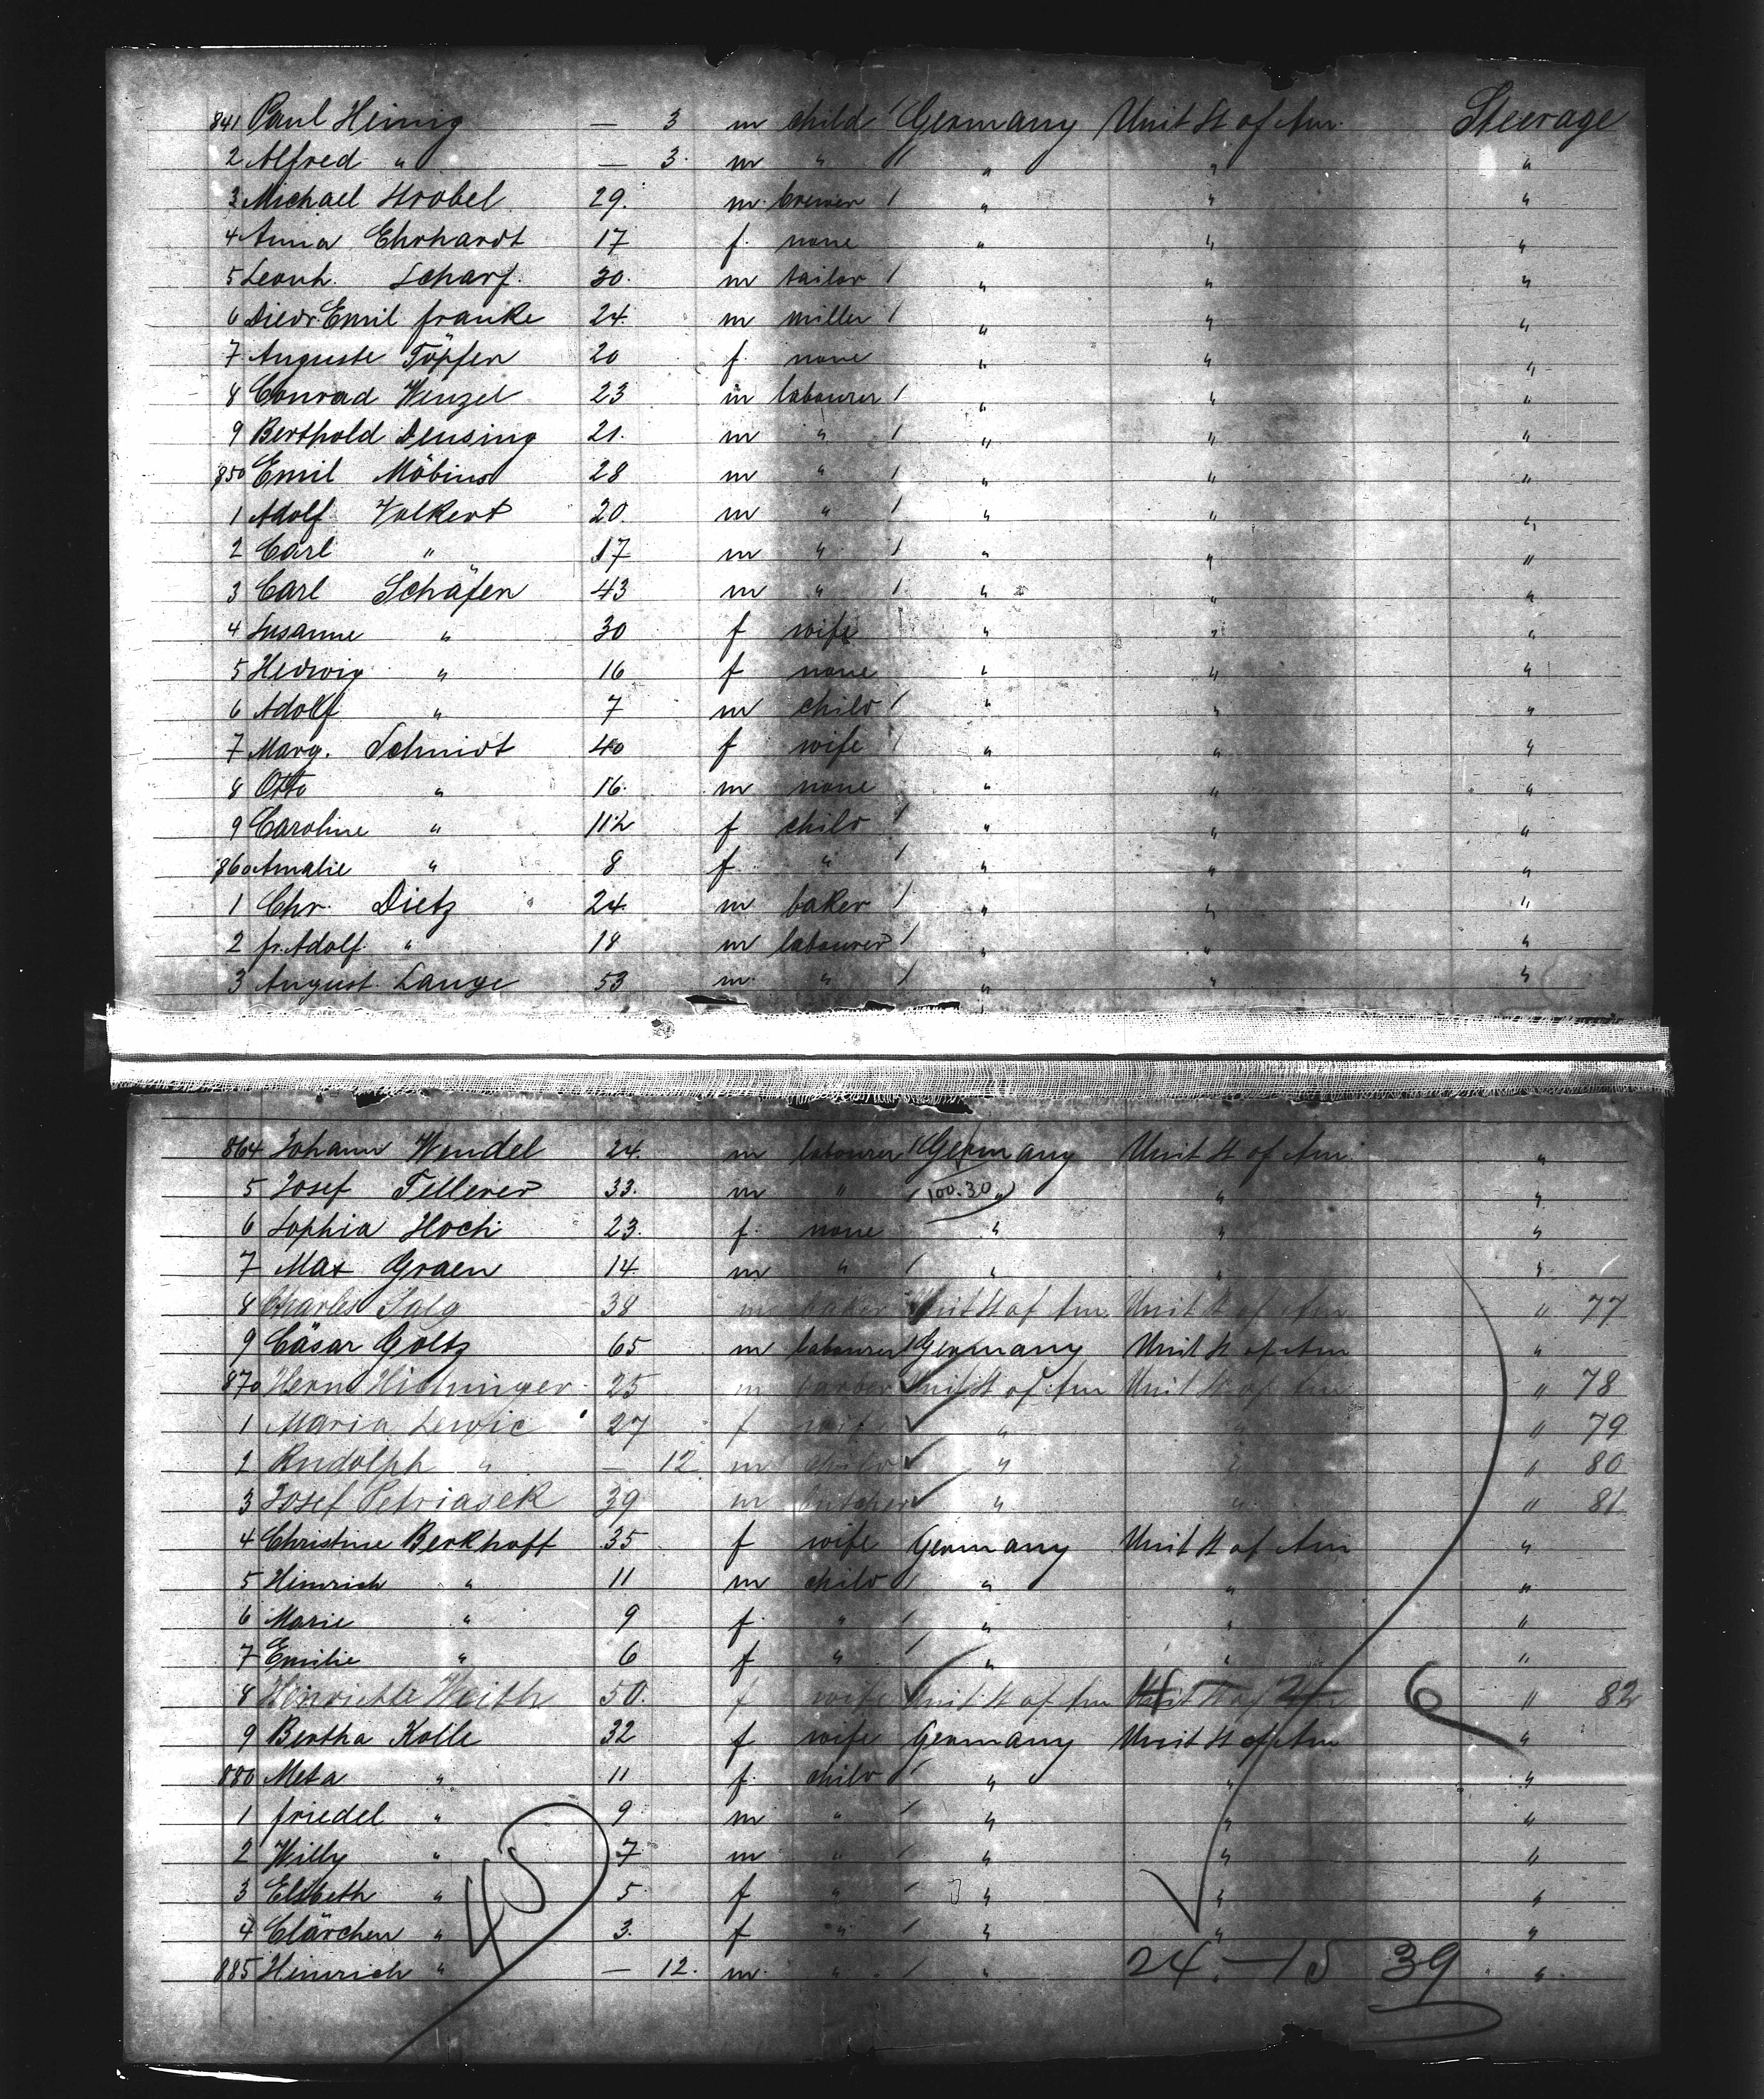 841 Paul Heinig — 3 m child / Germany Unit St of Am. Steerage
2 Alfred " — 3. m " / " " "
3 Michael Strobel 29. m. brewer / " " "
4 Anna Ehrhardt 17 f. none " " "
5 Leonh. Scharf. 30. m tailor / " " "
6 Diedr. Emil Franke 24. m miller / " " "
7 Auguste Töpfer 20 f. none " " "
8 Conrad Wenzel 23 m labourer / " " "
9 Berthold Densing 21. m " / " " "
850 Emil Möbius 28 m " / " " "
1 Adolf Volkert 20. m " / " " "
2 Carl " 17 m " / " " "
3 Carl Schäfer 43 m " / " " "
4 Susanne " 30 f wife " " "
5 Hedwig " 16 f none " " "
6 Adolf " 7 m child / " " "
7 Marg. Schmidt 40 f wife / " " "
8 Otto " 16. m none " " "
9 Caroline " 11½ f child / " " "
860 Amalie " 8 f " / " " "
1 Chr. Dietz 24 m baker / " " "
2 fr. Adolf " 18 m labourer / " " "
3 August Lange 53 m. " / " " "
864 Johann Wendel 24. m labourer / Germany Unit St of Am. "
5 Josef Fellerer 33. m " / 100.30 " " "
6 Sophia Hoch 23. f. none " " "
7 Max Graen 14. m " / " " "
8 Charles 38 m baker Unit St of Am Unit St of Am " 77
9 Cäsar Goltz 65 m labourer / Germany Unit St of Am "
870 Herm 25 m barber Unit St of Am Unit St of Am " 78
1 Maria 27 f wife " " " 79
2 Rudolph " — 12. m child " " " 80
3 Josef Petriasek 39 m butcher " " " 81
4 Christine Berkhoff 35 f wife Germany Unit St of Am "
5 Hinrich " 11 m child / " " "
6 Marie " 9 f. " / " " "
7 Emilie " 6 f " / " " "
8 Henriette Weith 50. f wife Unit St of Am Unit St of Am 6 " 82
9 Bertha Kolle 32 f wife Germany Unit St of Am "
880 Meta " 11 f. child / " " "
1 friedel " 9 m " / " " "
2 Willy " 7 m " / " " "
3 Elsbeth " 5 f " / " " "
4 Clärchen " 3. f " / " " "
885 Heinrich " — 12. m. " / " "
40
24. — 15 39